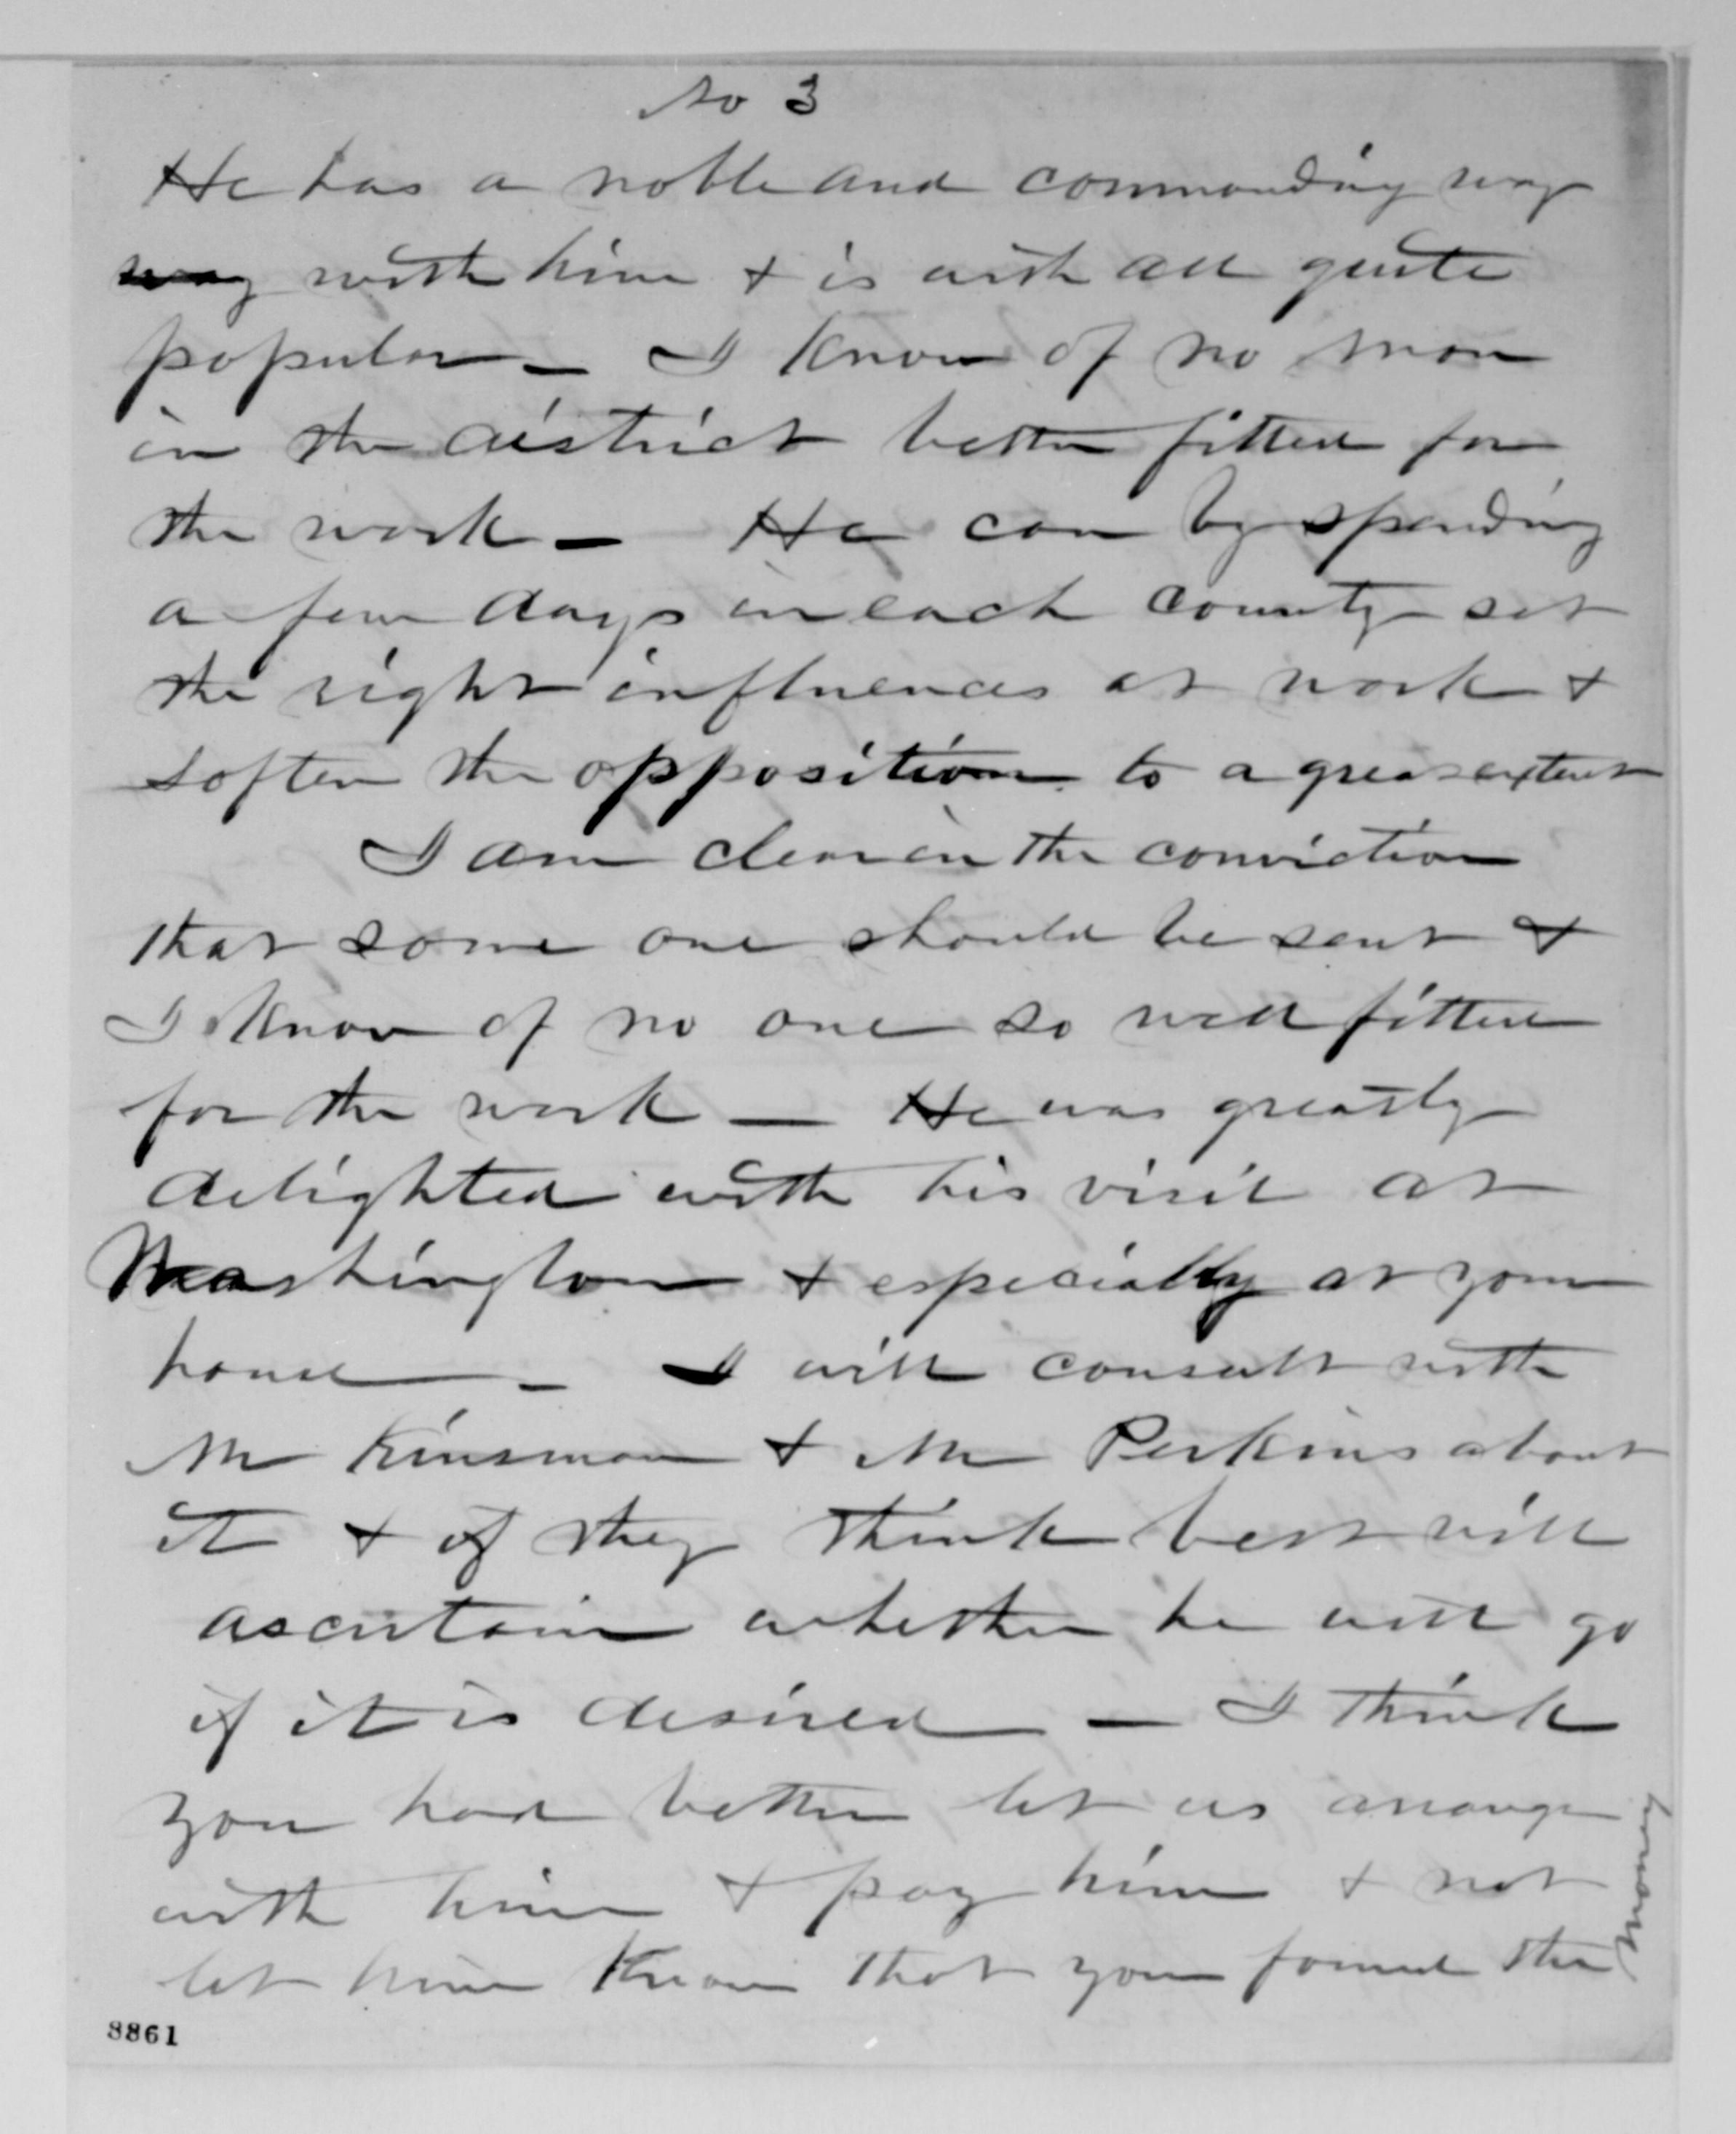 No 3
He has a noble and commanding way
way with him & is with all quite
popular – I know of no man
in the district better fitted for
the work – He can by spending
a few days in each county set
the right influences at work &
soften the opposition to a great extent
I am clear in the conviction
that some one should be sent &
I know of no one so well fitted
for the work – He was greatly
delighted with his visit at
Washington & especially at your
house – I will consult with
Mr Kinsman & Mr Perkins about
it & if they think best will
ascertain whether he will go
if it is desired – I think
you had better let us arrange
with him & pay him & not
let him know that you found the
money
8861